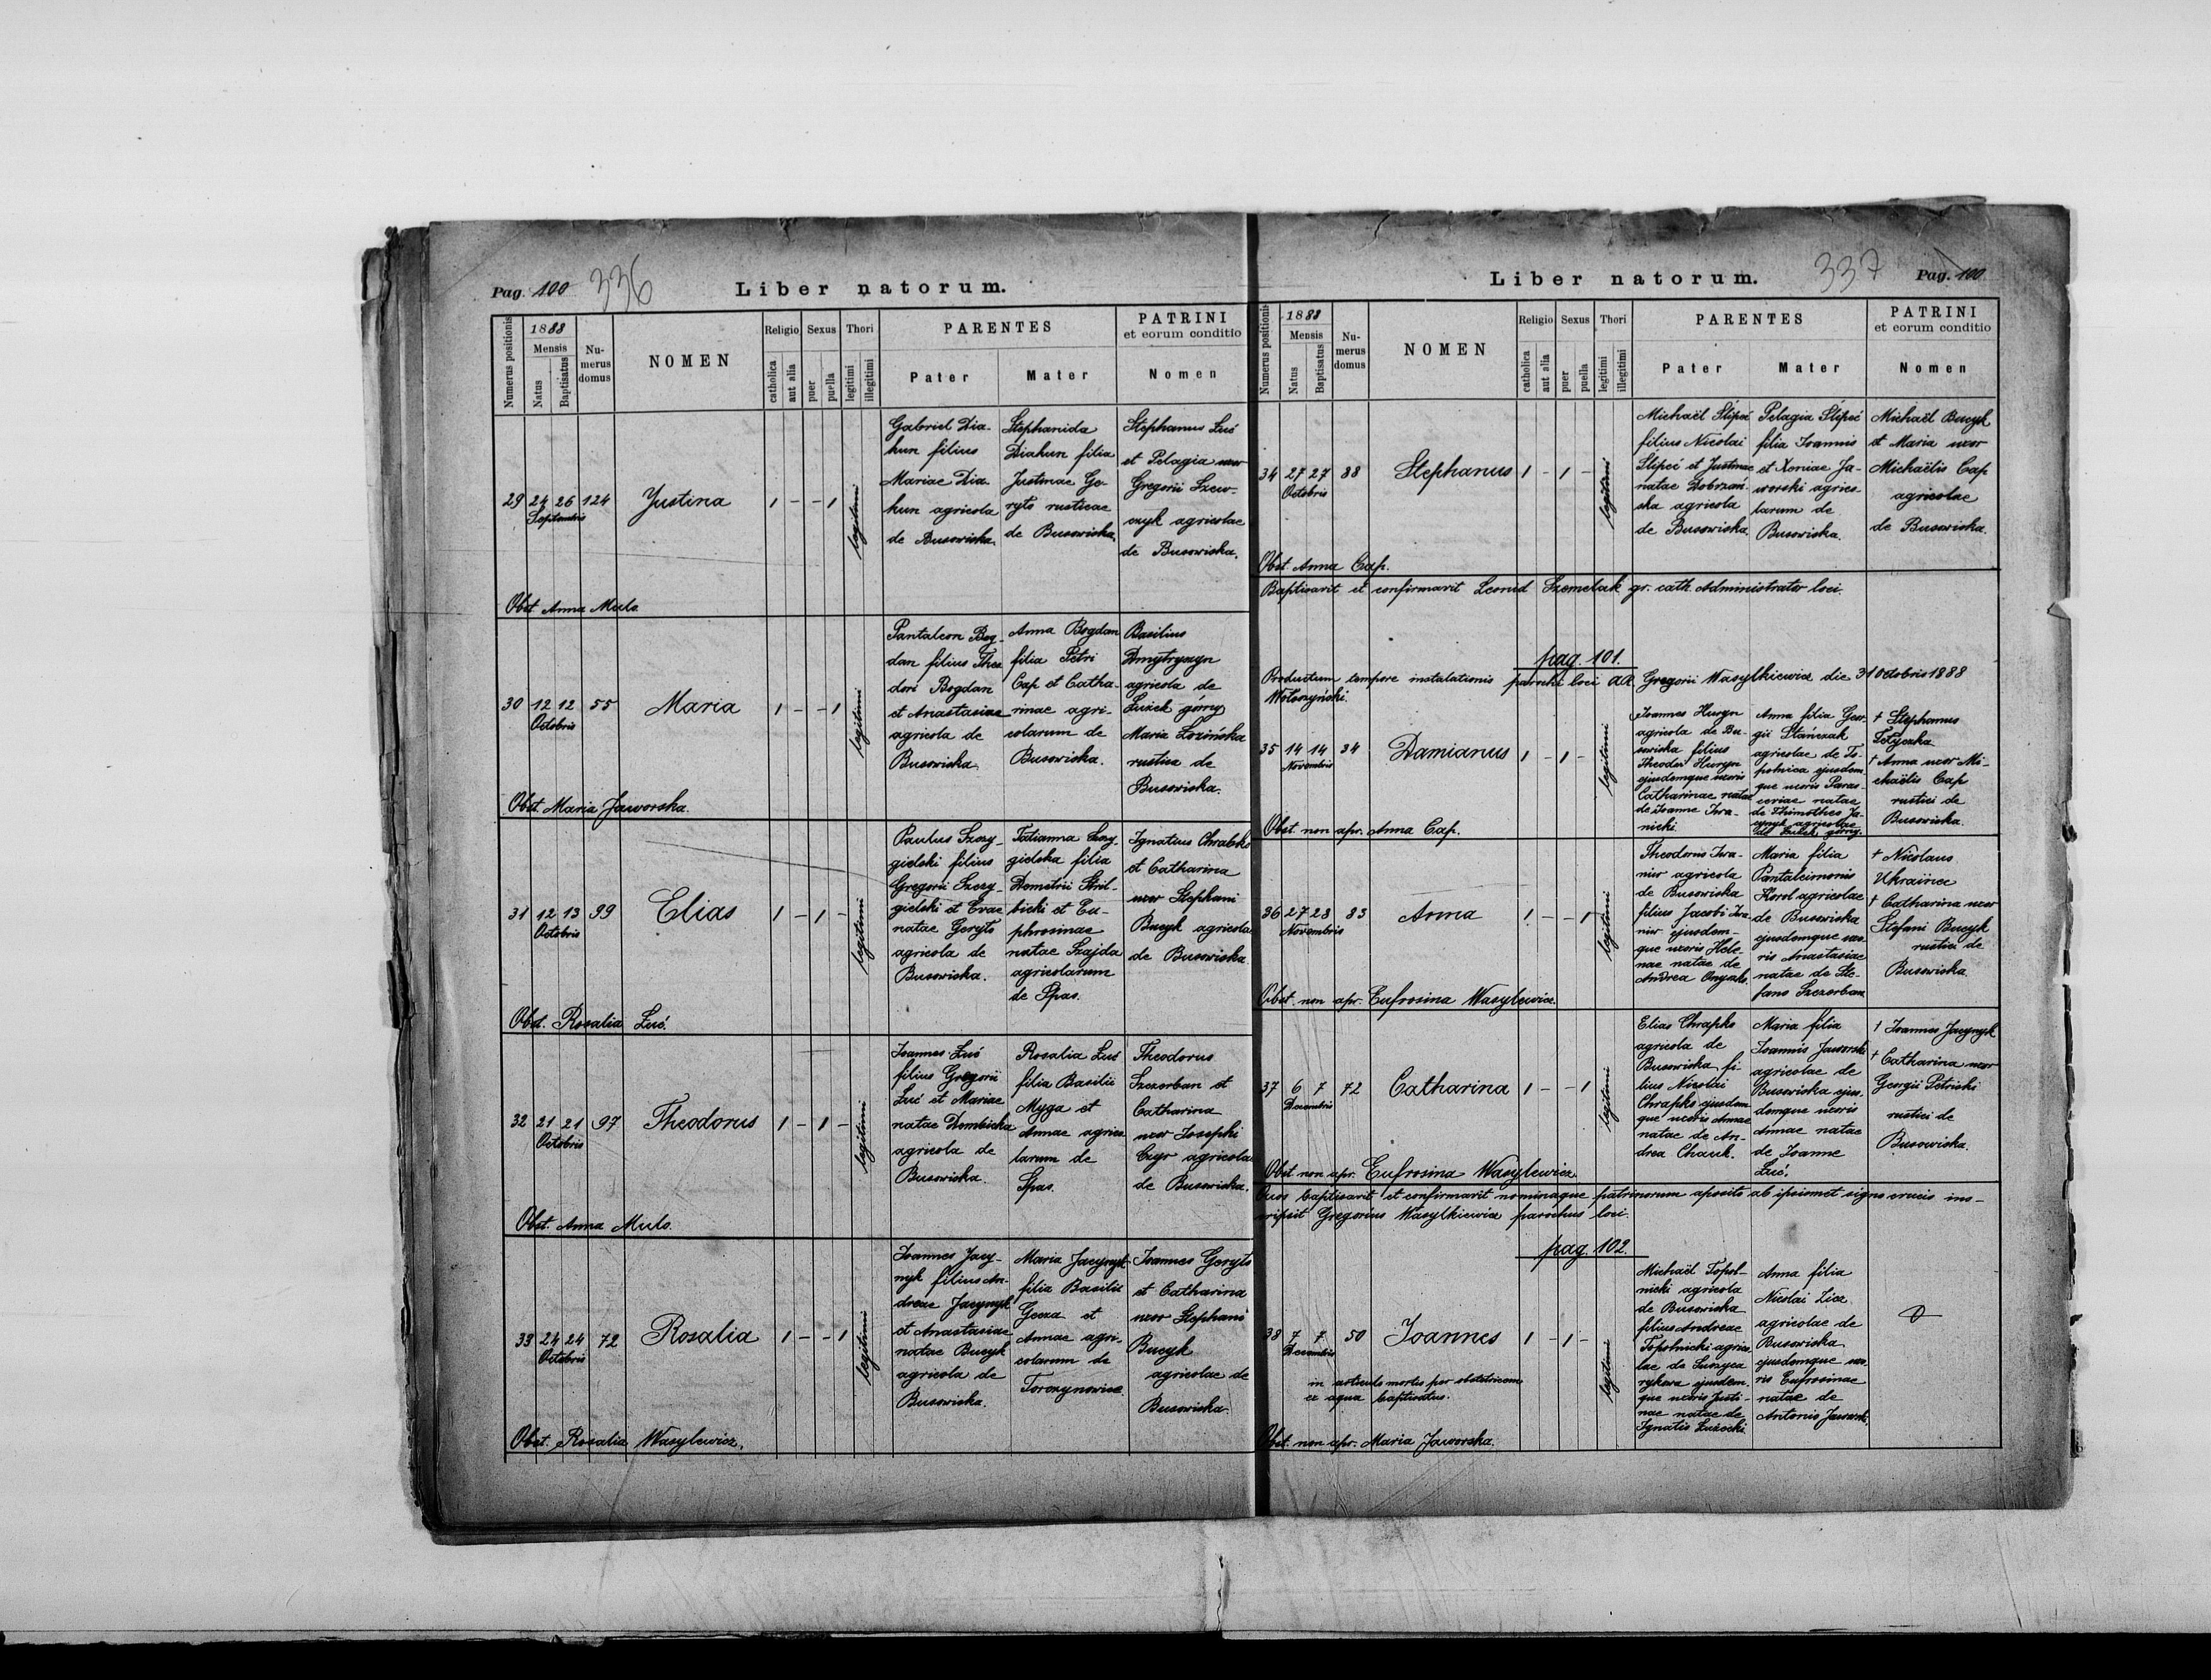 Pag. 100 336 Liber natorum.
Numerus positionis
1888
Mensis
Natus
Baptisatus
Numerus domus
NOMEN
Religio
catholica
aut alia
Sexus
puer
puella
Thori
legitimi
illegitimi
PARENTES
Pater
Mater
PATRINI
et eorum conditio
Nomen
29 24 26 124 Justina 1 - - 1 legitimi
Septembris
Gabriel Dia-
hun filius
Mariae Dia-
hun agricola
de Busowiska.
Stephanida
Diahun filia
Justinae Ge-
ryts rusticae
de Busowiska.
Stephanus Łuć
et Pelagia uxor
Gregorii Szew-
czyk agricolae
de Busowiska.
Obst. Anna Muls.
30 12 12 55 Maria 1 - - 1 legitimi
Octobris
Pantaleon Bog-
dan filius Theo-
dori Bogdan
et Anastasiae
agricola de
Busowiska.
Anna Bogdan
filia Petri
Cap et Catha-
rinae agri-
colarum de
Busowiska.
Basilius
Dmytryszyn
agricola de
Łużek górny
Maria Łozińska
rustica de
Busowiska.
Obst. Maria Jaworska.
31 12 13 99 Elias 1 - 1 - legitimi
Octobris
Paulus Szczy-
gielski filius
Gregorii Szczy-
gielski et Evae
natae Geryts
agricola de
Busowiska.
Tatianna Szczy-
gielska filia
Demetrii Stril-
bicki et Eu-
phrosinae
natae Szajda
agricolarum
de Spas.
Ignatius Chrabko
et Catharina
uxor Stephani
Bucyk agricolae
de Busowiska
Obst. Rosalia Łuć.
32 21 21 97 Theodorus 1 - 1 - legitimi
Octobris
Joannes Łuć
filius Gregorii
Łuć et Mariae
natae Dembicka
agricola de
Busowiska.
Rosalia Łuć
filia Basilii
Myga et
Annae agrico-
larum de
Spas.
Theodorus
Szczerban et
Catharina
uxor Josephi
Czyr agricolae
de Busowiska.
Obst. Anna Muls.
33 24 24 72 Rosalia 1 - - 1 legitimi
Octobris
Joannes Jacy-
nyk filius An-
dreae Jacynyk
et Anastasiae
natae Bucyk
agricola de
Busowiska.
Maria Jacynyk
filia Basilii
Gecza et
Annae agri-
colarum de
Torczynowice
Joannes Geryts
et Catharina
uxor Stephani
Bucyk
agricolae de
Busowiska.
Obst. Rosalia Wasylewicz.
Liber natorum. 337 Pag. 100
Numerus positionis
1888
Mensis
Natus
Baptisatus
Numerus domus
NOMEN
Religio
catholica
aut alia
Sexus
puer
puella
Thori
legitimi
illegitimi
PARENTES
Pater
Mater
PATRINI
et eorum conditio
Nomen
34 27 27 88 Stephanus 1 - 1 - legitimi
Octobris
Michaël Slipeć
filius Nicolai
Slipeć et Justinae
natae Dobrzań-
ska agricola
de Busowiska.
Pelagia Slipeć
filia Joannis
et Xeniae Ja-
worski agrico-
larum de
Busowiska.
Michaël Bucyk
et Maria uxor
Michaëlis Cap
agricolae
de Busowiska.
Obst. Anna Cap.
Baptisavit et confirmavit Leonid Szemelak gr. cath. Administrator loci.
pag. 101.
Productum tempore instalationis parochi loci AR. Gregorii Wasylkiewicz die 31 Octobris 1888
Wołoszyński.
35 14 14 34 Damianus 1 - 1 - legitimi
Novembris
Joannes Huryn
agricola de Bu-
sowiska filius
Theodori Huryn
ejusdemque uxoris
Catharinae natae
de Joanne Iwa-
nicki.
Anna filia Geor-
gii Stańczak
agricolae de To-
polnica ejusdem-
que uxoris Paras-
ceviae natae
de Thimotheo Ja-
cynyk agricolae
de Łużek górny.
† Stephanus
Fetyczka
† Anna uxor Mi-
chaëlis Cap
rustici de
Busowiska.
Obst. non apr. Anna Cap.
36 27 28 83 Anna 1 - - 1 legitimi
Novembris
Theodorus Iwa-
niw agricola
de Busowiska
filius Jacobi Iwa-
niw ejusdem-
que uxoris Hele-
nae natae de
Andrea Onysko.
Maria filia
Pantaleimonis
Korol agricolae
de Busowiska
ejusdemque uxo-
ris Anastasiae
natae de Ste-
fano Szczerban
† Nicolaus
Ukrainec
† Catharina uxor
Stefani Bucyk
rustici de
Busowiska
Obst. non apr. Eufrosina Wasylewicz.
37 6 7 72 Catharina 1 - - 1 legitimi
Decembris
Elias Chrapko
agricola de
Busowiska fi-
lius Nicolai
Chrapko ejusdem
que uxoris Annae
natae de An-
drea Chauk.
Maria filia
Joannis Jaworski
agricolae de
Busowiska ejus-
demque uxoris
Annae natae
de Joanne
Łuć.
† Joannes Jacynyk
† Catharina uxor
Georgii Petricki
rustici de
Busowiska.
Obst. non apr. Eufrosina Wasylewicz.
Quos baptisavit et confirmavit nominaque patrinorum aposito ab ipsismet signo crucis ins-
cripsit Gregorius Wasylkiewicz parochus loci.
pag. 102.
38 7 7 50 Joannes 1 - 1 - legitimi
Decembris
in articulo mortis per obstetricem
ex aqua baptisatus.
Michaël Topol-
nicki agricola
de Busowiska
filius Andreae
Topolnicki agrico-
lae de
rykowa ejusdem-
que uxoris Justi-
nae natae de
Ignatio Łużecki.
Anna filia
Nicolai Zicz
agricolae de
Busowiska
ejusdemque uxo-
ris Eufrosinae
natae de
Antonio Jaworski
Obst. non apr. Maria Jaworska.